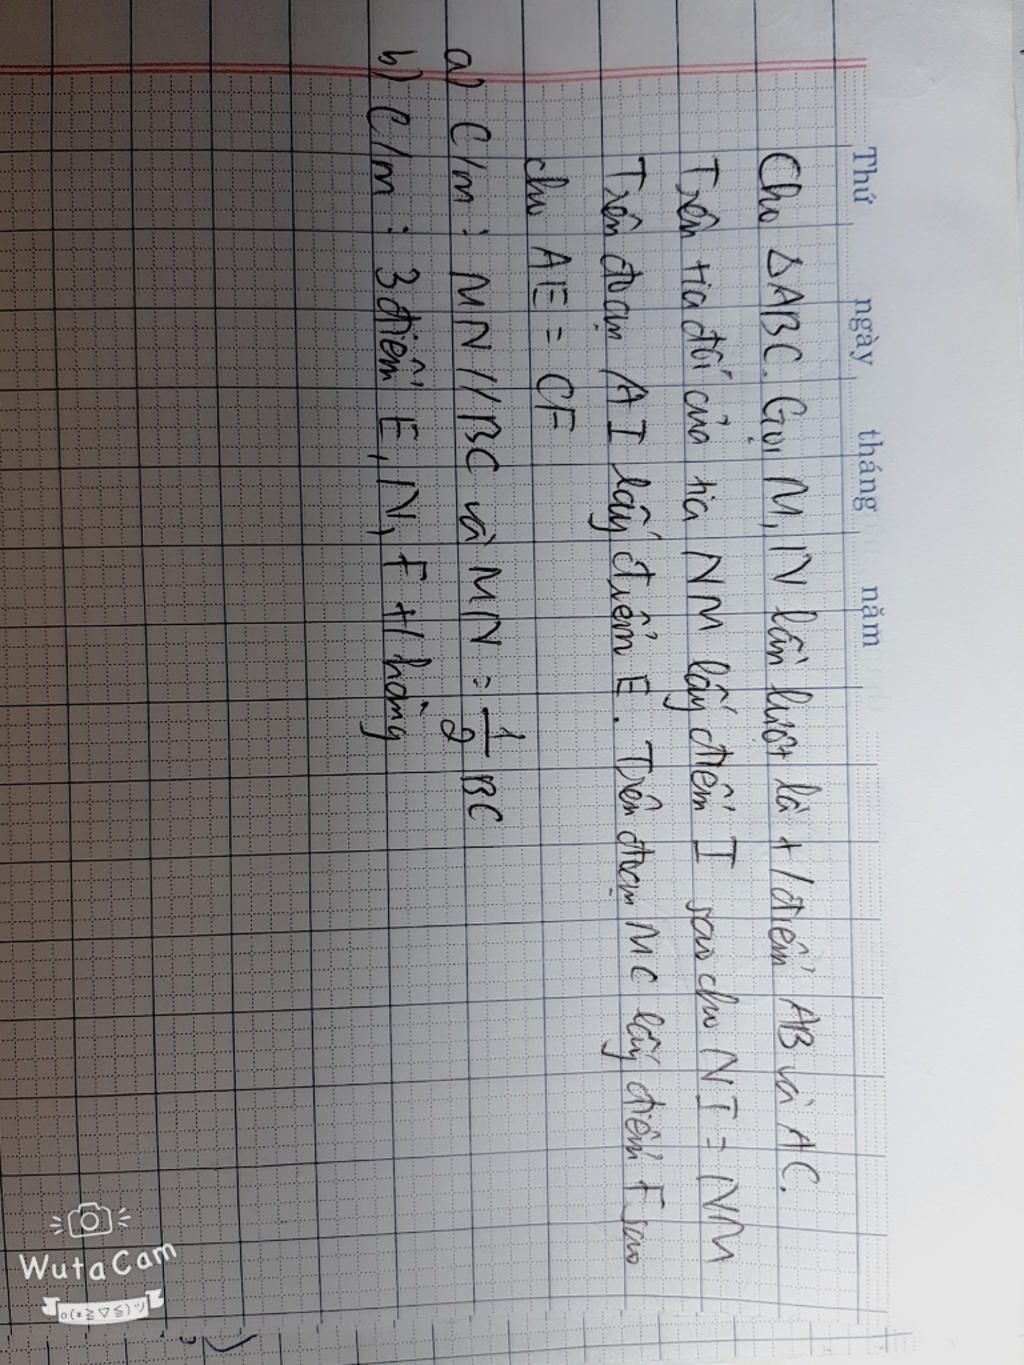 Thứ ngày tháng năm
Cho ΔABC. Gọi M, N lần lượt là t/điểm AB và AC.
Trên tia đối của tia NM lấy điểm I sao cho NI = NM
Trên đoạn AI lấy điểm E. Trên đoạn MC lấy điểm F sao
cho AE = CF
a) C/m : MN//BC và MN = 1/2 BC
b) C/m : 3 điểm E, N, F t/hàng
WutaCam
o(*≧▽≦)ツ